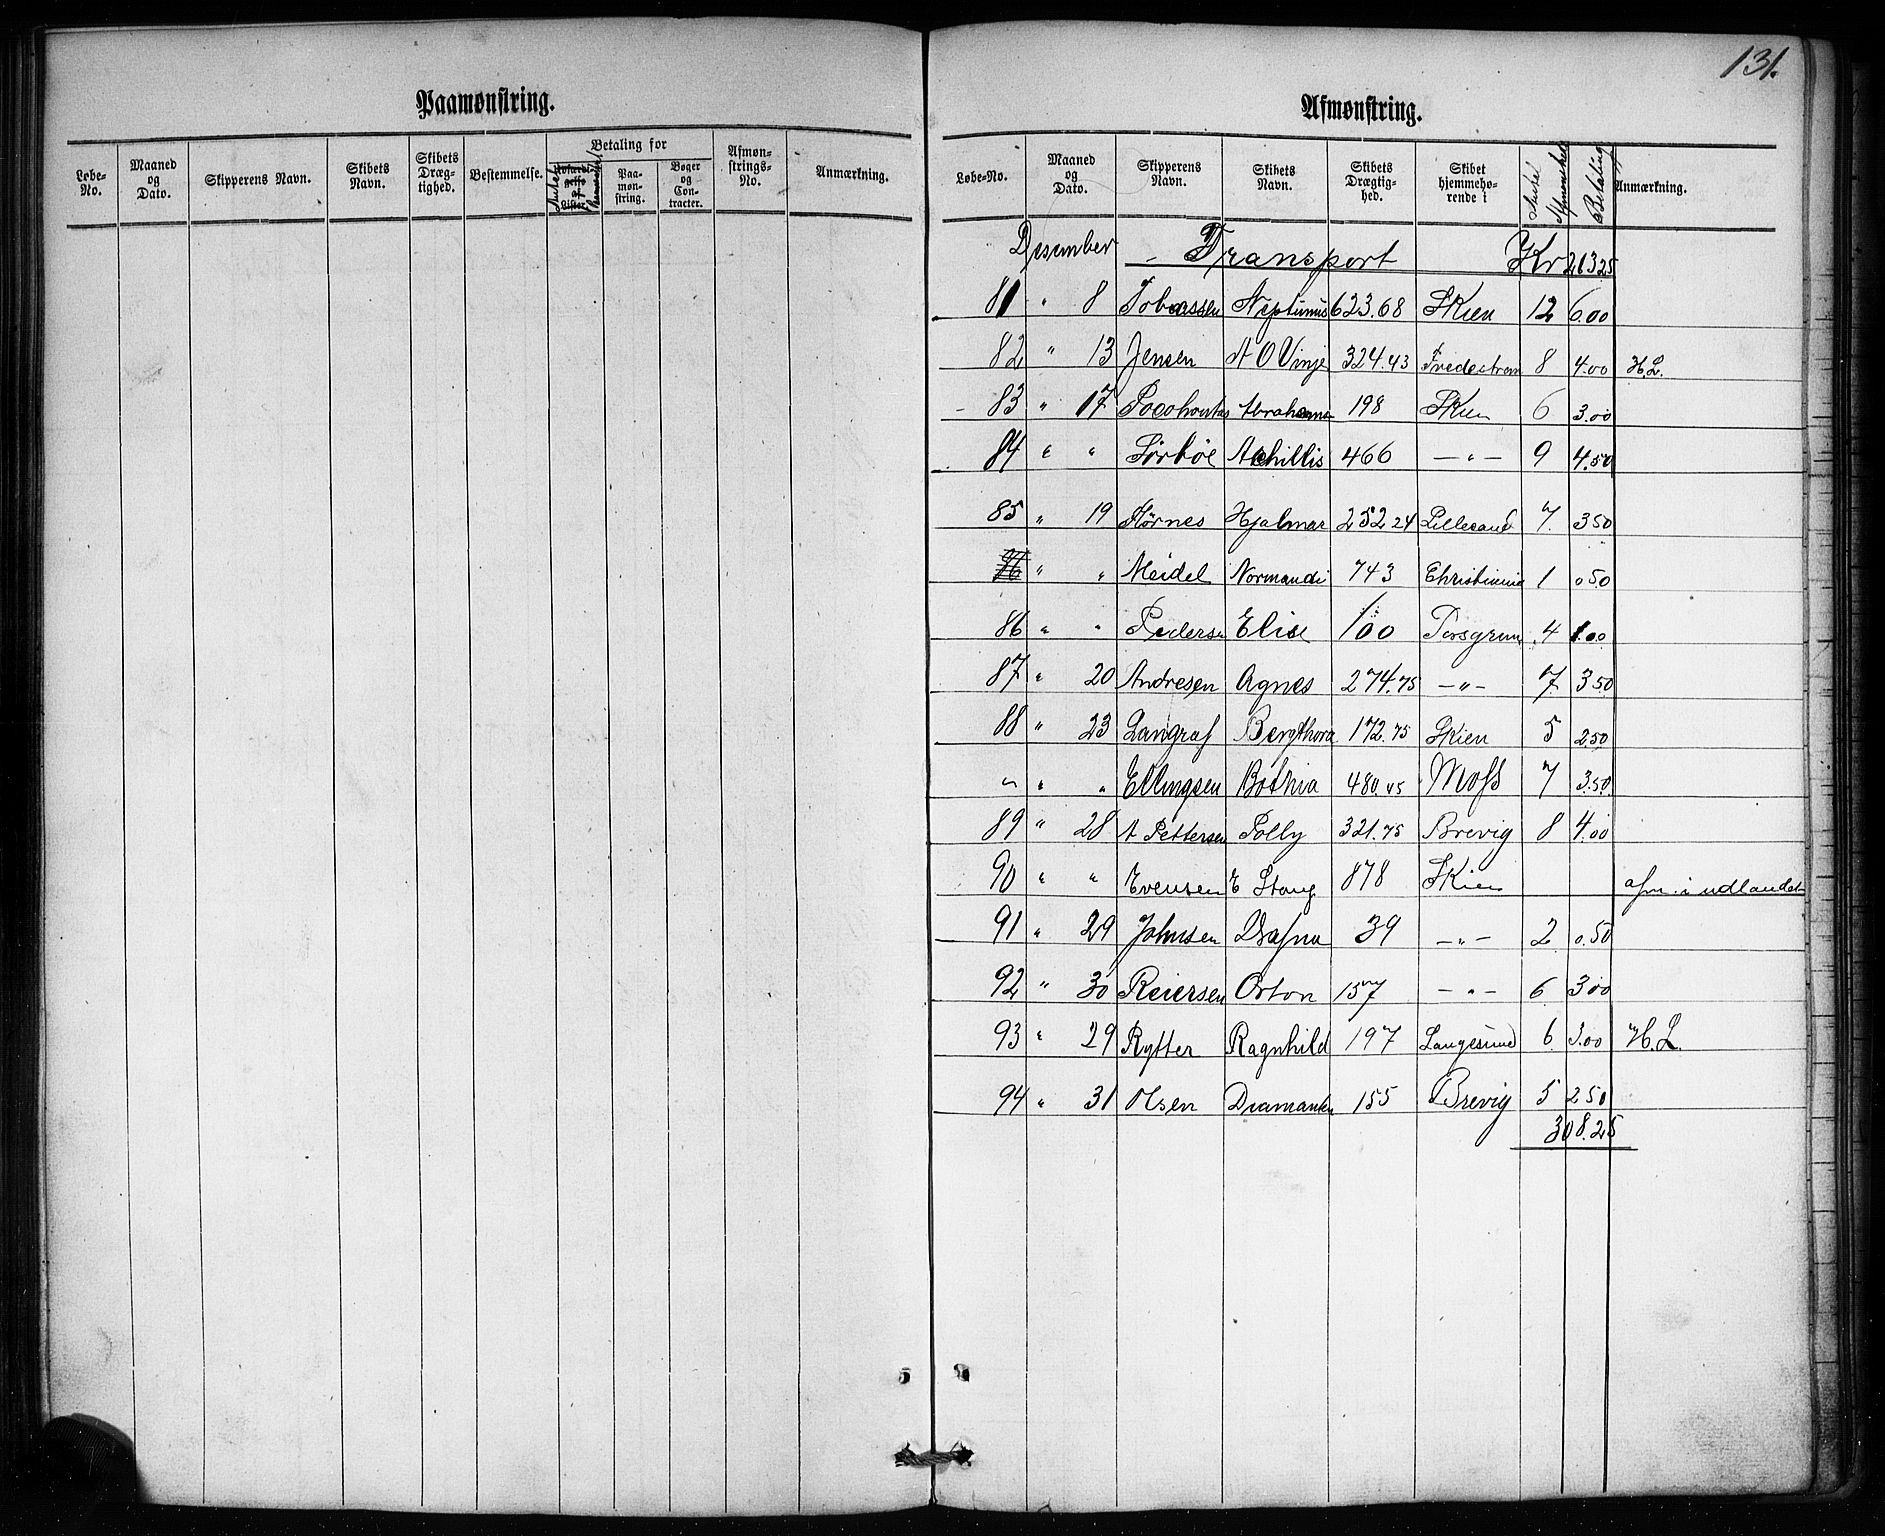 131.
Paamønstring.
Løbe-No. Maaned og Dato. Skipperens Navn. Skibets Navn. Skibets Dræg-tighed. Bestemmelse. Betaling for Paa-møn-string. Bøger og Con-tracter. Afmøn-strings-No. Anmærkning.
Afmønstring.
Løbe-No. Maaned og Dato. Skipperens Navn. Skibets Navn. Skibets Drægtig-hed. Skibet hjemmehø-rende i Antal Afmønstrede Betaling Anmærkning.
Desember - Transport Kr 263.25
81 " 8 Tobiassen Neptunus 623.68 Skien 12 6.00
82 " 13 Jensen A O Vinje 324.43 Tvedestran 8 4.00 H.L.
83 " 17 Pocohontas Abrahams 198 Skien 6 3.00
84 " " Sørbøe Achillis 466 -"- 9 4.50
85 " 19 Hørnes Hjalmar 252.24 Lillesand 7. 3.50
" " Meidel Normandi 743 Christiania 1 0.50
86 " " Pederse Elise 100 Porsgrun 4 1.00
87 " 20 Andresen Agnes 274.75 -"- 7 3.50
88 " 23 Langraf Bergthora 172.75 Skien 5 2.50
" " " Ellingsen Bothia 480.45 Moss 7 3.50
89 " 28 A Pettersen Polly 321.75 Brevig 8 4.00
90 " " Evensen E Stang 878 Skien afm. i udlandet
91 " 29 Johnsen Dafna 39 -"- 2 0.50
92 " 30 Reiersen Orton 157 -"- 6 3.00
93 " 29 Rytter Ragnhild 197 Langesund 6 3.00 H.L.
94 " 31 Olsen Diamanten 155 Brevig 5 2.50
308.25